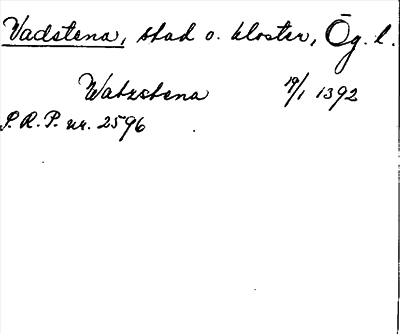 Vadstena, stad o. kloster, Ög. l.
Watzstena 19/1 1392
S.R.P. nr. 2596